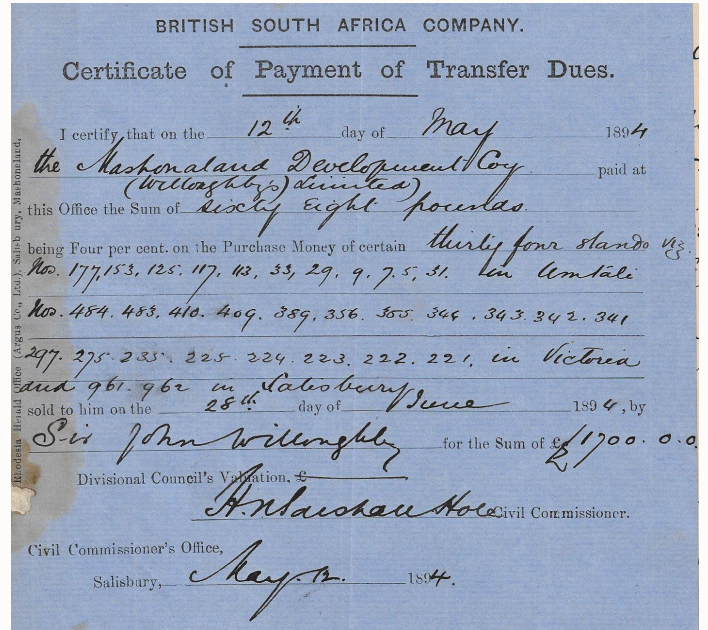 BRITISH SOUTH AFRICA COMPANY.
Certificate of Payment of Transfer Dues.
I certify that on the 12th day of May 1894
the Mashonaland Development Coy paid at
(Willoughbys) Limited)
this Office the Sum of sixty Eight pounds
being Four per cent. on the Purchase Money of certain thirty four stands viz.
Nos. 177, 153, 125. 117, 113, 33, 29, 9, 7. 5, 31. in Umtali
Nos. 484. 483. 410. 409. 389, 356. 355. 344. 343. 342. 341
297. 275. 235. 225. 224. 223. 222. 221, in Victoria
and 961. 962 in Salisbury
sold to him on the 28th day of June 1894, by
Sir John Willoughby for the Sum of £ £1700. 0. 0.
Divisional Council's Valuation, £
H. Marshall Hole Civil Commissioner.
Civil Commissioner's Office,
Salisbury, May. 12. 1894.
Rhodesia Herald Office (Argus Co., Ltd.), Salisbury, Mashonaland.